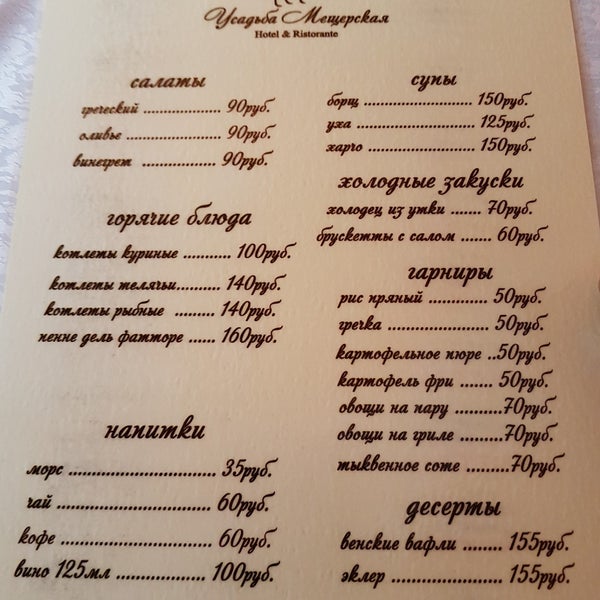 Усадьба Мещерская
Hotel & Ristorante
салаты
греческий .................. 90руб.
оливье ...................... 90руб.
винегрет ................. 90руб.
горячие блюда
котлеты куриные ........... 100руб.
котлеты телячьи........... 140руб.
котлеты рыбные ......... 140руб.
пенне дель фатторе ...... 160руб.
напитки
морс .................................. 35руб.
чай .................................... 60руб.
кофе ................................... 60руб.
вино 125мл .................... 100руб.
супы
борщ ......................... 150руб.
уха ........................... 125руб.
харчо ......................... 150руб.
холодные закуски
холодец из утки ....... 70руб.
брускетты с салом ....... 60руб.
гарниры
рис пряный ............. 50руб.
гречка ...................... 50руб.
картофельное пюре ..50руб.
картофель фри ........ 50руб.
овощи на пару ...........70руб.
овощи на гриле ..........70руб.
тыквенное соте ..........70руб.
десерты
венские вафли ........... 155руб.
эклер ......................... 155руб.